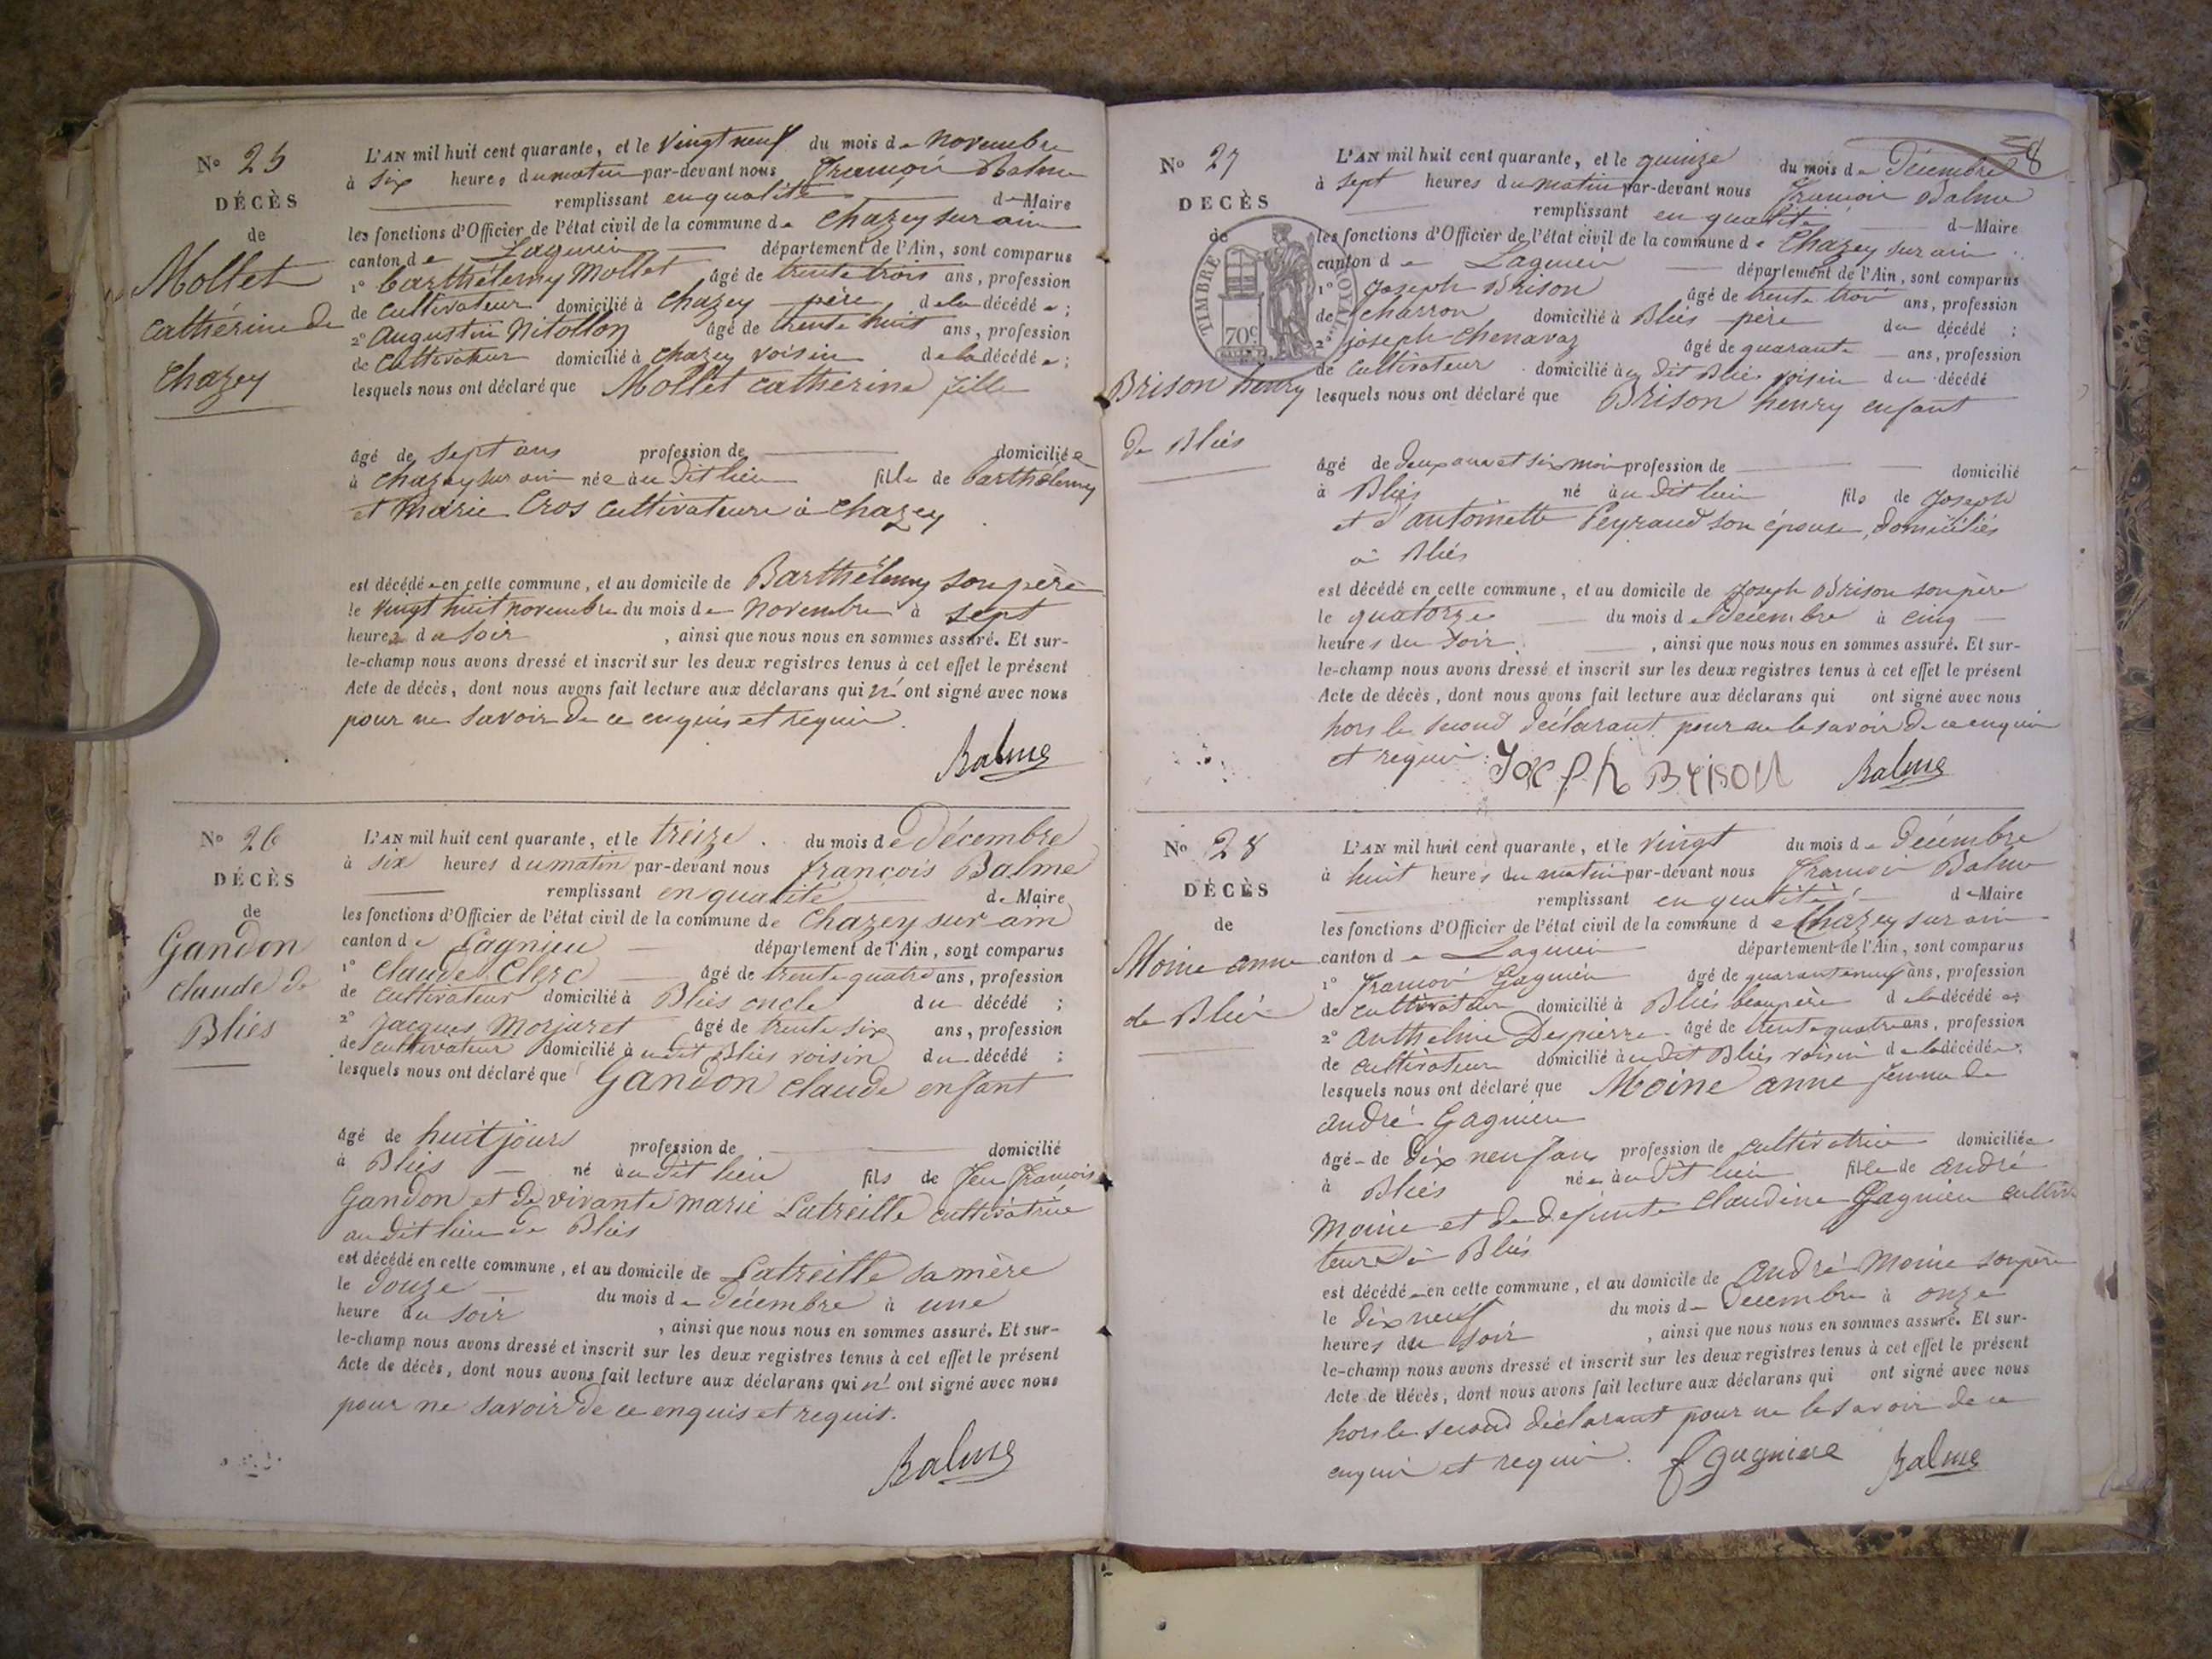 N° 25
DÉCÈS
de
Mollet
Catherine de
Chazey
L'AN mil huit cent quarante, et le vingt neuf du mois de novembre
à six heures du matin par-devant nous François Balme
remplissant en qualité de Maire
les fonctions d'Officier de l'état civil de la commune de Chazey sur ain
canton de Lagnieu département de l'Ain, sont comparus
1° Barthélemy Mollet âgé de trente trois ans, profession
de cultivateur domicilié à Chazey père de la décédée;
2° Augustin Nitollon âgé de trente huit ans, profession
de cultivateur domicilié à Chazey voisin de la décédée;
lesquels nous ont déclaré que Mollet Catherine fille
âgé de sept ans profession de domiciliée
à Chazey sur ain née au dit lieu fille de Barthélemy
et Marie Cros cultivateurs à Chazey
est décédée en cette commune, et au domicile de Barthélemy son père
le vingt huit novembre du mois de novembre à sept
heures du soir, ainsi que nous nous en sommes assuré. Et sur-
le-champ nous avons dressé et inscrit sur les deux registres tenus à cet effet le présent
Acte de décès, dont nous avons fait lecture aux déclarans qui n'ont signé avec nous
pour ne savoir de ce enquis et requis.
Balme
N° 26
DÉCÈS
de
Gandon
Claude de
Bliés
L'AN mil huit cent quarante, et le treize du mois de Décembre
à six heures du matin par-devant nous François Balme
remplissant en qualité de Maire
les fonctions d'Officier de l'état civil de la commune de Chazey sur ain
canton de Lagnieu département de l'Ain, sont comparus
1° Claude Clerc âgé de trente quatre ans, profession
de cultivateur domicilié à Bliés oncle du décédé;
2° Jacques Morjaret âgé de trente six ans, profession
de cultivateur domicilié à u dit Bliés voisin du décédé;
lesquels nous ont déclaré que Gandon Claude enfant
âgé de huit jours profession de domicilié
à Bliés né au dit lieu fils de feu François
Gandon et de vivante Marie Latreille cultivatrice
au dit lieu de Bliés
est décédé en cette commune, et au domicile de Latreille sa mère
le douze du mois de Décembre à une
heure du soir, ainsi que nous nous en sommes assuré. Et sur-
le-champ nous avons dressé et inscrit sur les deux registres tenus à cet effet le présent
Acte de décès, dont nous avons fait lecture aux déclarans qui n'ont signé avec nous
pour ne savoir de ce enquis et requis.
Balme
8
N° 27
DECÈS
de
TIMBRE ROYAL
70c
Brison henry
de Bliés
L'AN mil huit cent quarante, et le quinze du mois de Décembre
à sept heures du matin par-devant nous François Balme
remplissant en qualité de Maire
les fonctions d'Officier de l'état civil de la commune de Chazey sur ain
canton de Lagnieu département de l'Ain, sont comparus
1° Joseph Brison âgé de trente trois ans, profession
de charron domicilié à Bliés père du décédé;
2° joseph Chenavaz âgé de quarante ans, profession
de cultivateur domicilié à u dit Bliés voisin du décédé
lesquels nous ont déclaré que Brison henry enfant
âgé de deux ans et six mois profession de domicilié
à Bliés né au dit lieu fils de Joseph
et d'antoinette Peyraud son épouse, domiciliés
à Bliés
est décédé en cette commune, et au domicile de Joseph Brison son père
le quatorze du mois de Décembre à cinq
heures du soir, ainsi que nous nous en sommes assuré. Et sur-
le-champ nous avons dressé et inscrit sur les deux registres tenus à cet effet le présent
Acte de décès, dont nous avons fait lecture aux déclarans qui ont signé avec nous
hors le second déclarant pour ne le savoir de ce enquis
et requis. Joseph Brison Balme
N° 28
DÉCÈS
de
Moine anne
de Bliés
L'AN mil huit cent quarante, et le vingt du mois de Décembre
à huit heures du matin par-devant nous François Balme
remplissant en qualité de Maire
les fonctions d'Officier de l'état civil de la commune de Chazey sur ain
canton de Lagnieu département de l'Ain, sont comparus
1° François Gagnieu âgé de quarante neuf ans, profession
de cultivateur domicilié à Bliés beaupère de la décédée;
2° Anthelme Despierre âgé de trente quatre ans, profession
de cultivateur domicilié à u dit Bliés voisin de la décédée;
lesquels nous ont déclaré que Moine anne femme de
andré Gagnieu
âgé de dix neuf ans profession de cultivatrice domiciliée
à Bliés née au dit lieu fille de andré
Moine et de defunte Claudine Gagnieu cultiva
teurs à Bliés
est décédée en cette commune, et au domicile de andré Moine son père
le dix neuf du mois de Décembre à onze
heures du soir, ainsi que nous nous en sommes assuré. Et sur-
le-champ nous avons dressé et inscrit sur les deux registres tenus à cet effet le présent
Acte de décès, dont nous avons fait lecture aux déclarans qui ont signé avec nous
hors le second déclarant pour ne le savoir de ce
enquis et requis. f gagniere Balme